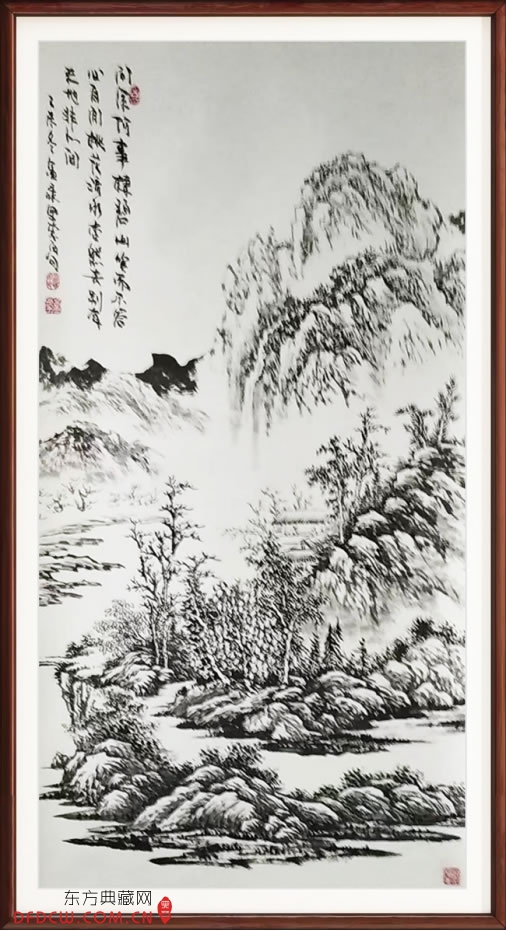 问余何事栖碧山笑而不答
心自闲桃花流水杳然去别有
天地非人间
乙未冬
东方典藏网
DFDCW.COM.CN